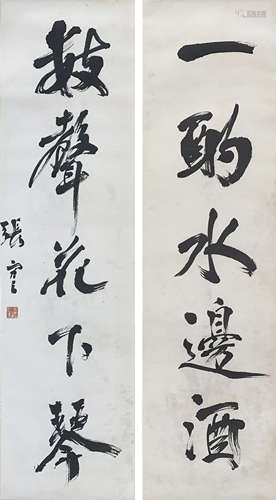 一酌水邊酒
數聲花下琴
張宗